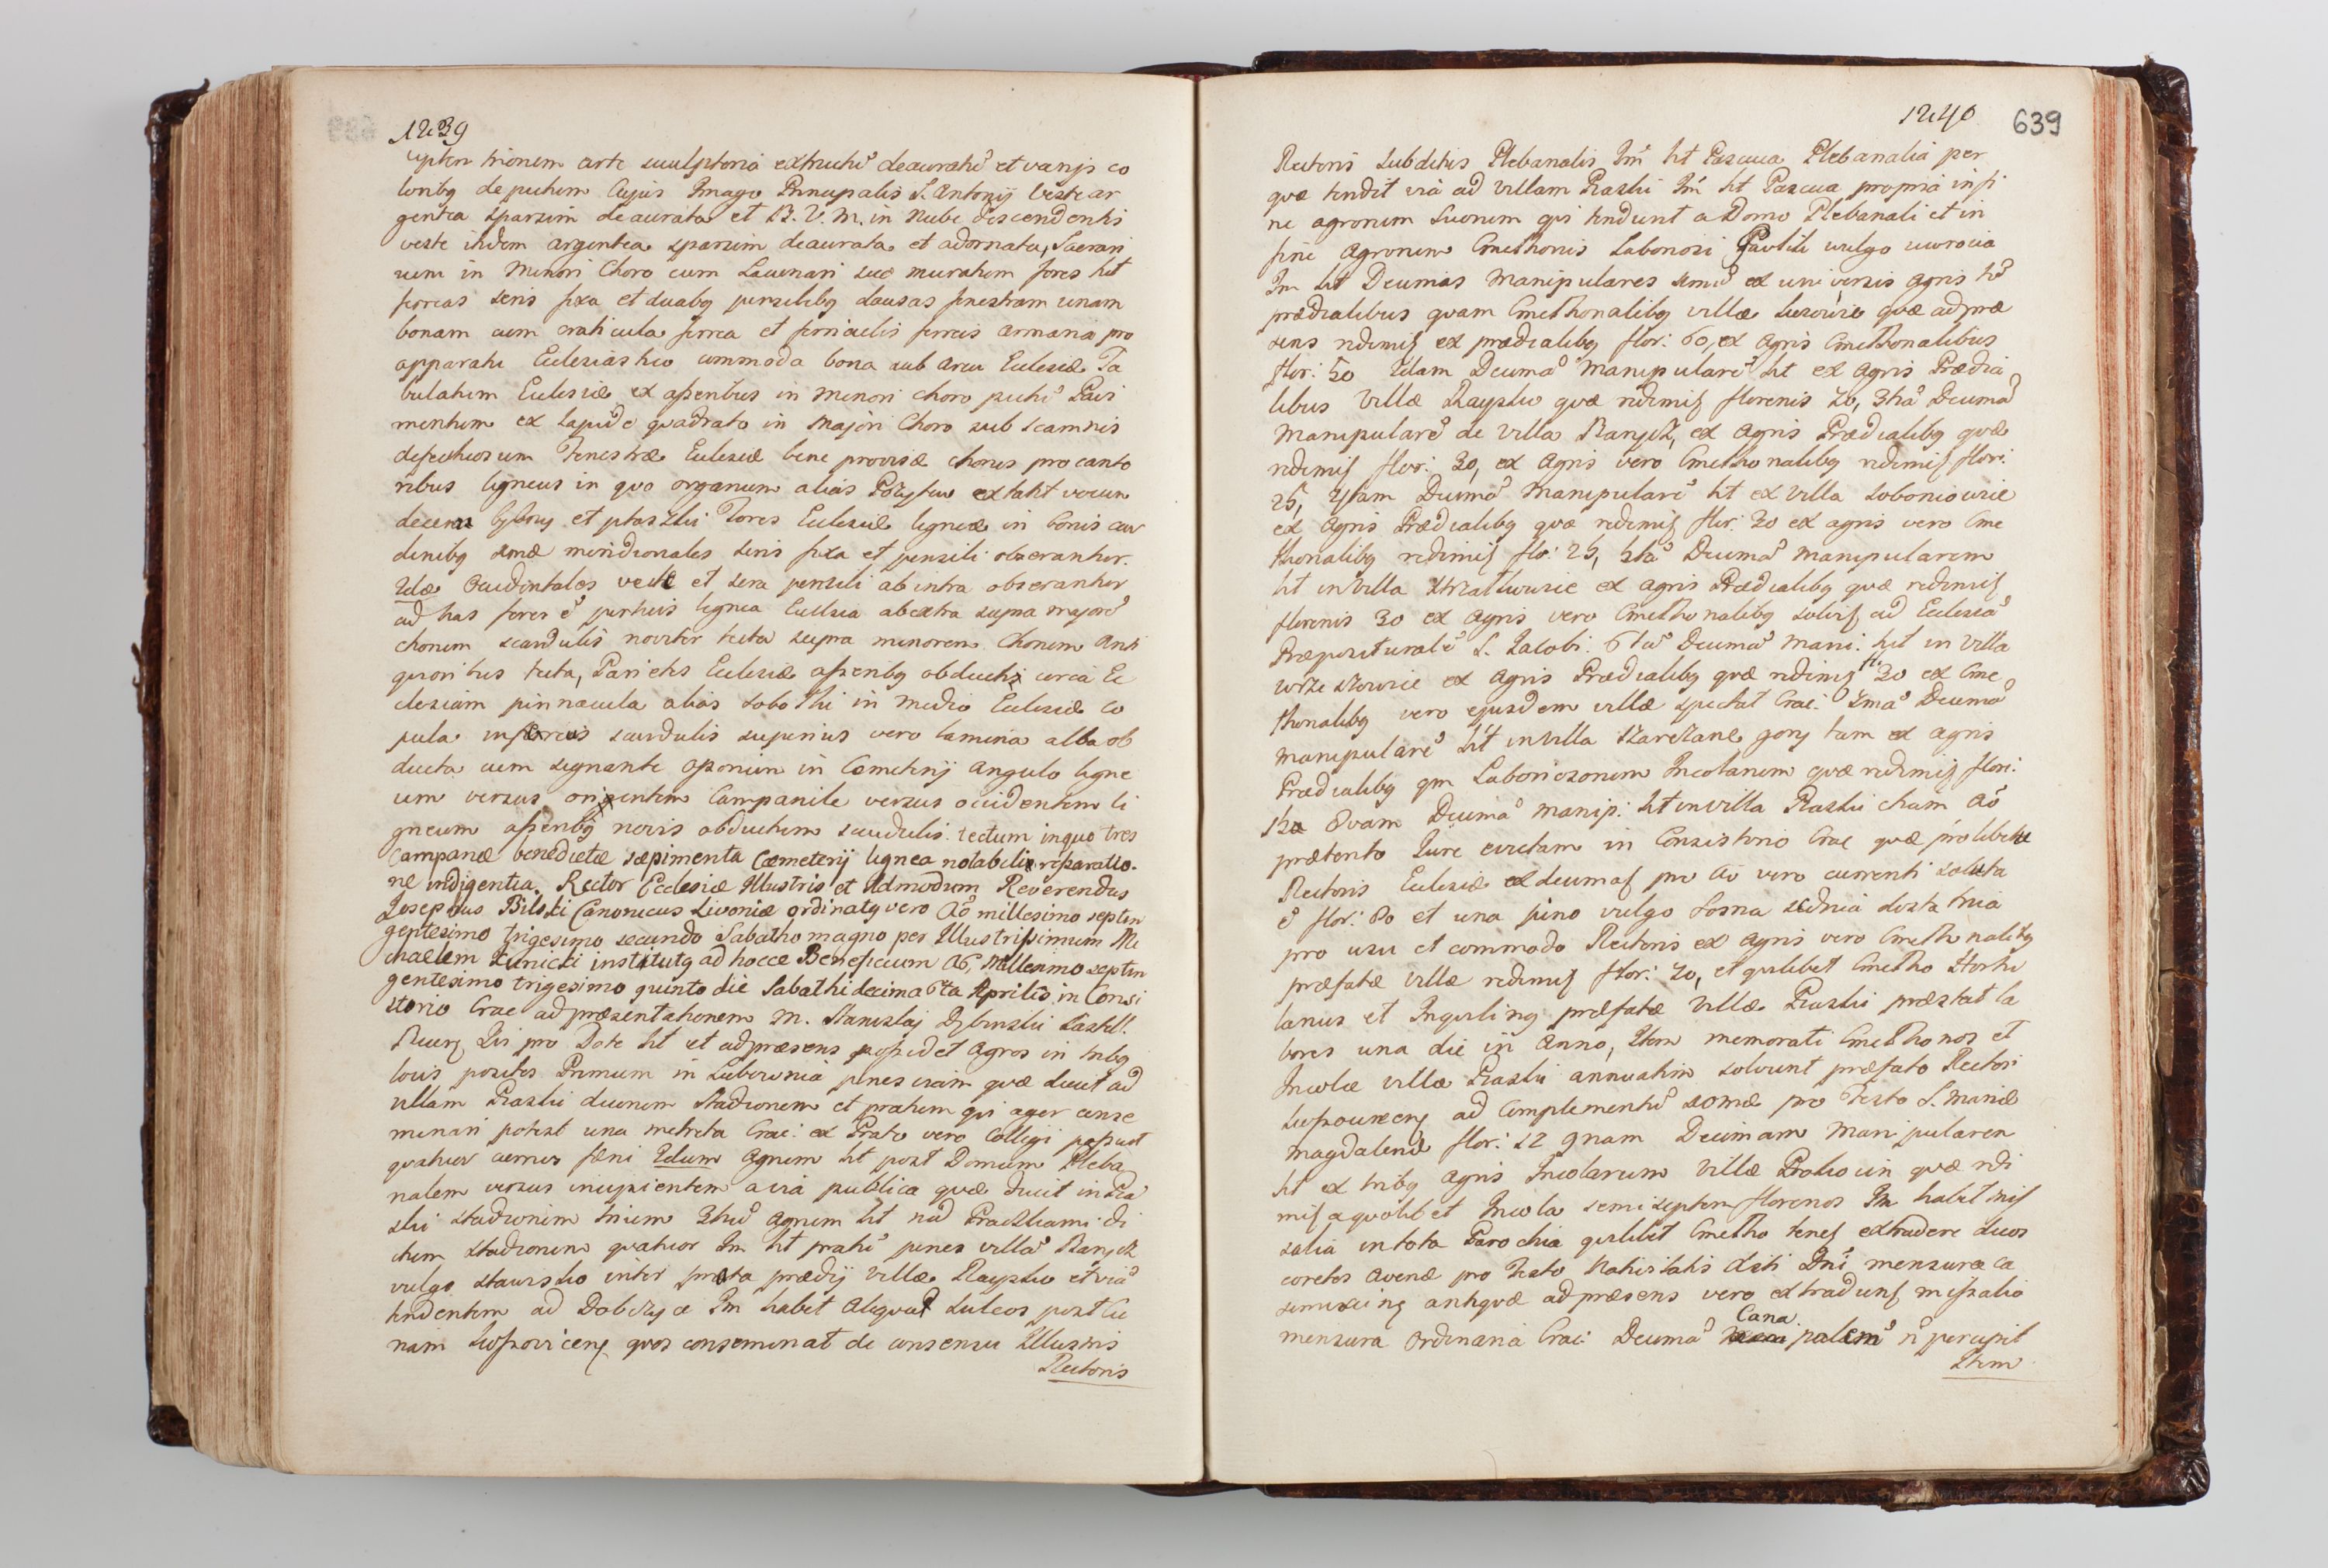 1239
trionem arte sculptoria extructũ deauratũ et varijs co
loribg depictum Cujus Imago Principalis S. Antonij Veste ar
gentea sparsim deaurata et B. V. M. in Nube descendentis
veste itidem argentea sparsim deaurata et adornata, Sacrari
um in Minori Choro cum Lavenari suo muratum fores hẽt
ferreas seris fixa et duabg pensilibg clausas fenestram unam
bonam cum craticula ferrea et ferriculis ferreis armaria pro
apparatu Ecclesiastico commoda bona sub Arcu Ecclesiæ Ta
bulatum Ecclesiæ ex asseribus in Minori Choro pictũ Pavi
mentum ex Lapide quadrato in Majori Choro sub scamnis
defectuosum Fenestræ Ecclesiæ bene provisæ chorus pro canto
ribus ligneus in quo organum alias Pozytyw extatit vocum
decem et ptaszki Fores Ecclesiæ ligneæ in bonis car
dinibg 1mæ meridionales seris fixa et pensili obserantur.
2dæ Occidentales vecte et sera pensili ab intra obserantur
ad has fores ẽ porticus lignea Ecclesia ab extra supra majorẽ
chorum scandulis noviter tecta supra minorem Chorum Anti
quioribus tecta, Parietes Ecclesiæ asseribg obducti circa Ec
clesiam pinnacula alias Sobotki in Medio Ecclesiæ Co
pula inferius scandulis superius vero lamina alba ob
ducta cum signante Aponim in Cometerij Angulo ligne
um versus orientem Campanile versus occidentem li
gneum asseribg novis obductum scandulis tectum in quo tres
Campanæ benedictæ sæpimenta Cæmeterij lignea notabili reparatio-
ne indigentia. Rector Ecclesiæ Illustris et Admodum Reverendus
Josephus Bilski Canonicus Livoniæ ordinatg vero Aõ millesimo septin
gentesimo trigesimo secundo Sabatho magno per Illustrissimum Mi
chaelem Kunicki institutg ad hocce Beneficium Aõ, Millesimo septin
gentesimo trigesimo quinto die Sabathi decima 6ta Aprilis in Consi
storio Crac ad præsentationem M. Stanislaj Dębinski Castell.
pro Dote hẽt et ad præsens possidet Agros in tribg
locis positos Primum in Luborownia penes viam quæ ducit ad
villam Raski duorum Stadiorum et pratum qui ager conse
minari potest una metreta Crac: ex Prato vero Colligi possunt
quatuor currus fæni 2dum Agrum hẽt post Domum Pleba
nalem versus incipientem a via publica quæ ducit in Ra
ski stadiorum trium 3tiũ Agrum hẽt nad Praczkami di
ctum Stadiorum quatuor Im hẽt pratũ penes villã Banyck
vulgo Stawisko inter prata prædij villæ Raysko et viã
tendentem ad Dobczyce Im habet Aliquod Sulcos post Cu
riam quos conseminat de consensu Illustris
Rectoris
1240 639
Rectoris Subditis Plebanalis Im hẽt Pascua Plebanalia per
quæ tendit via ad villam Raski Im hẽt Pascua propria in fi
ne agrorum Suorum qui tendunt a Domo Plebanali et in
fine Agrorum Cmethonis Laboriosi vulgo
Im hẽt Decimas Manipulares 1mũ ex universis Agris tũ
prædialibus quam Cmethonalibg villæ quæ ad præ
sens redimit ex prædialibg flor: 60, ex Agris Cmethonalibus
flor: 50 2dam Decimã Manipularẽ hẽt ex Agris Prædia
libus Villæ Raysko quæ redimit florenis 20, 3tiã Decimã
Manipularẽ de Villa Banyck, ex Agris Prædialibg quæ
redimit flor: 30, ex Agris vero Cmethonalibg redimit flor:
25, 4tam Decimã Manipularẽ hẽt ex Villa Soboniowice
ex Agris Prædialibg quæ redimit flor: 30 ex agris vero Cme
thonalibg redimit flo: 25, 5tã Decimã Manipularem
hẽt in villa Strzałkowice ex Agris Prædialibg quæ redimit
florenis 30 ex Agris vero Cmethonalibg solvit ad Ecclesiã
Præposituralẽ S. Jacobi. 6tã Decimã Mani: hẽt in Villa
ex Agris Prædialibg quæ redimit fl. 30 ex Cme
thonalibg vero ejusdem villæ spectat Crac: 7mã Decimã
Manipularẽ hẽt in villa gory tam ex Agris
Prædialibg qm Laboriosorum Incolarum quæ redimit flor:
8vam Decimã Manip: hẽt in villa Raski etiam Aõ
prætento Jure evictam in Consistorio Crac quæ pro libitu
Rectoris Ecclesiæ pro Aõ vero currenti soluta
ẽ flor: 80 et una pino vulgo Sosna
pro usu et commodo Rectoris ex Agris vero Cmethonalibg
præfatæ villæ redimit flor: 20, et quilibet Cmetho Hortu
lanus et Inquiling præfatæ Villæ Raski præstat la
bores una die in Anno, Item memorati Cmethones et
Incolæ villæ Raski annuatim solvunt præfato Rectori
ad Complementũ 1omæ pro Festo S. Mariæ
Magdalenæ flor: 12 9nam Decimam Manipularem
hẽt ex tribg Agris Incolarum Villæ quæ redi
mit a quolibet Incola semi septem florenos Im habet mis
salia in tota Parochia quilibet Cmetho tenet extradere duos
coretos Avenæ pro Festo Nativitatis Dsti Dni mensura Ca
simiring antiquæ ad præsens vero extradunt missalia
mensura Ordinaria Crac: Decimã Canapalemẽ ñ percipit
Item